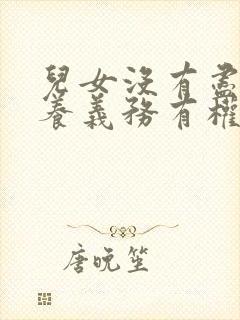 兒女沒有盡
養義務有權
唐晚笙